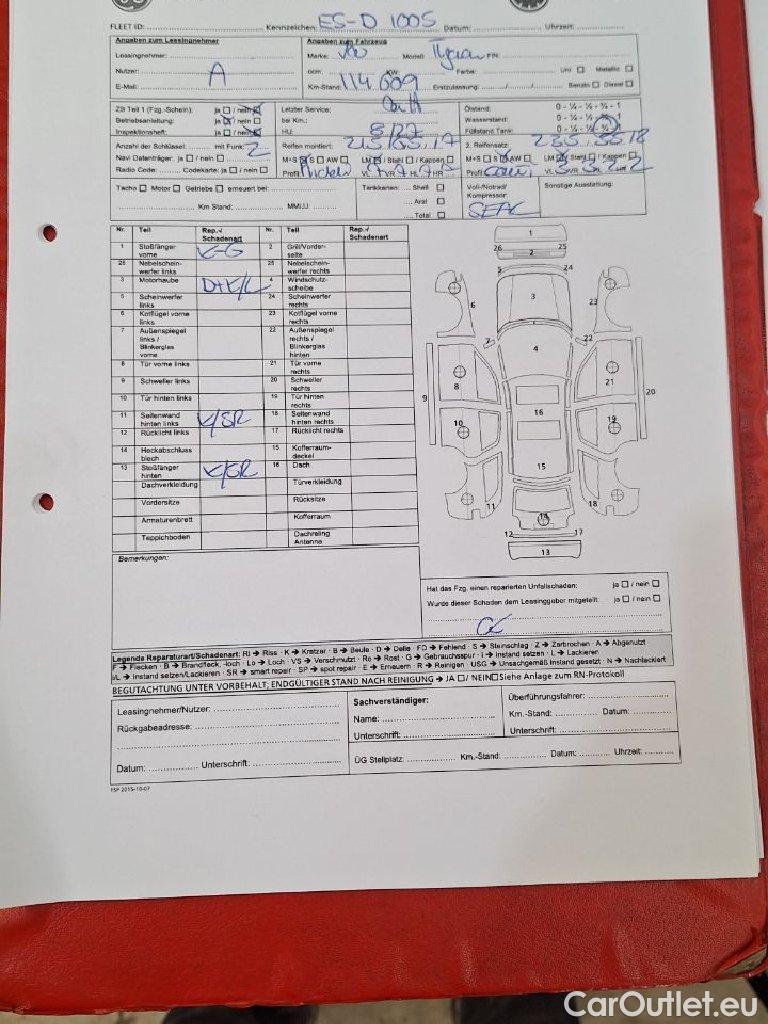 FLEET ID: Kennzeichen: ES-D 1005 Datum: Uhrzeit:
Angaben zum Leasingnehmer
Leasingnehmer:
Nutzer: A
E-Mail:
Angaben zum Fahrzeug
Marke: VW Modell: FIN:
ccm: KW Farbe: Uni Metallic
Km-Stand: 114.609 Erstzulassung: Benzin Diesel
ZB Teil 1 (Fzg.-Schein): ja / nein
Betriebsanleitung: ja / nein
Inspektionsheft: ja / nein
Anzahl der Schlüssel: mit Funk: 2
Navi Datenträger: ja / nein
Radio Code: Codekarte: ja / nein
Letzter Service:
bei Km.:
HU: 8/27
Reifen montiert: 215/65.17
M+S S AW LM / Stahl / Kappen
Profil VL VR HL HR
Ölstand: 0 - ¼ - ½ - ¾ - 1
Wasserstand: 0 - ¼ - ½ - ¾ - 1
Füllstand Tank: 0 - ¼ - ½ - ¾ - 1
2. Reifensatz: 235.55.18
M+S S AW LM / Stahl / Kappen
Profil VL VR HL HR
Tacho Motor Getriebe erneuert bei:
Km Stand: MM/JJ
Tankkarten: Shell
Aral
Total
Voll-/Notrad/
Kompressor:
Sonstige Ausstattung:
Nr. Teil Rep./ Schadenart Nr. Teil Rep./ Schadenart
1 Stoßfänger vorne K-G 2 Grill/Vorderseite
26 Nebelscheinwerfer links 25 Nebelscheinwerfer rechts
3 Motorhaube 4 Windschutzscheibe
5 Scheinwerfer links 24 Scheinwerfer rechts
6 Kotflügel vorne links 23 Kotflügel vorne rechts
7 Außenspiegel links / Blinkerglas vorne 22 Außenspiegel rechts / Blinkerglas hinten
8 Tür vorne links 21 Tür vorne rechts
9 Schweller links 20 Schweller rechts
10 Tür hinten links 19 Tür hinten rechts
11 Seitenwand hinten links K/SR 18 Seitenwand hinten rechts
12 Rücklicht links 17 Rücklicht rechts
14 Heckabschlussblech 15 Kofferraumdeckel
13 Stoßfänger hinten K/SR 16 Dach
Dachverkleidung Türverkleidung
Vordersitze Rücksitze
Armaturenbrett Kofferraum
Teppichboden Dachreling Antenne
1
26 2 25
5 24
6 3 23
7 22
4
8 21
9 20
10 16 19
15
11 14 18
12 17
13
Bemerkungen:
Hat das Fzg. einen reparierten Unfallschaden: ja / nein
Wurde dieser Schaden dem Leasinggeber mitgeteilt: ja / nein
Legende Reparaturart/Schadenart: RI → Riss · K → Kratzer · B → Beule · D → Delle · FD → Fehlend · S → Steinschlag · Z → Zerbrochen · A → Abgenutzt
F → Flecken · BI → Brandfleck, -loch · Lo → Loch · VS → Verschmutzt · Ro → Rost · G → Gebrauchsspur · I → Instand setzen · L → Lackieren
I/L → Instand setzen/Lackieren · SR → smart repair · SP → spot repair · E → Erneuern · R → Reinigen · USG → Unsachgemäß instand gesetzt · N → Nachlackiert
BEGUTACHTUNG UNTER VORBEHALT; ENDGÜLTIGER STAND NACH REINIGUNG → JA / NEIN Siehe Anlage zum RN-Protokoll
Leasingnehmer/Nutzer:
Rückgabeadresse:
Datum: Unterschrift:
Sachverständiger:
Name:
Unterschrift:
Überführungsfahrer:
Km.-Stand: Datum:
Unterschrift:
ÜG Stellplatz: Km.-Stand: Datum: Uhrzeit:
FSP 2015-10-07
CarOutlet.eu